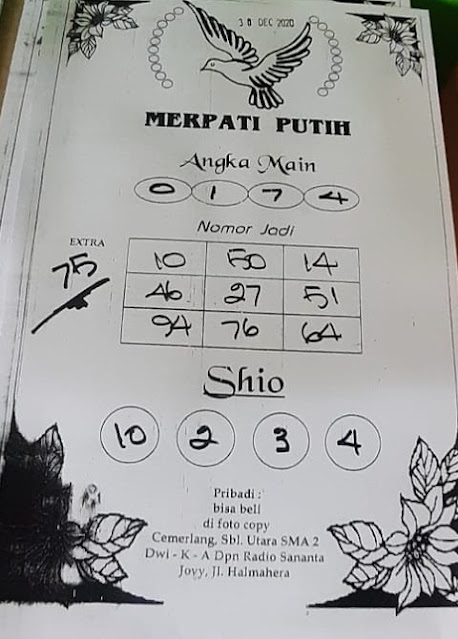 30 DEC 2020
MERPATI PUTIH
Angka Main
0 1 7 4
Nomor Jadi
EXTRA
75
10 50 14
46 27 51
94 76 64
Shio
10 2 3 4
Pribadi :
bisa beli
di foto copy
Cemerlang, Sbl. Utara SMA 2
Dwi - K - A Dpn Radio Sananta
Jovy, Jl. Halmahera